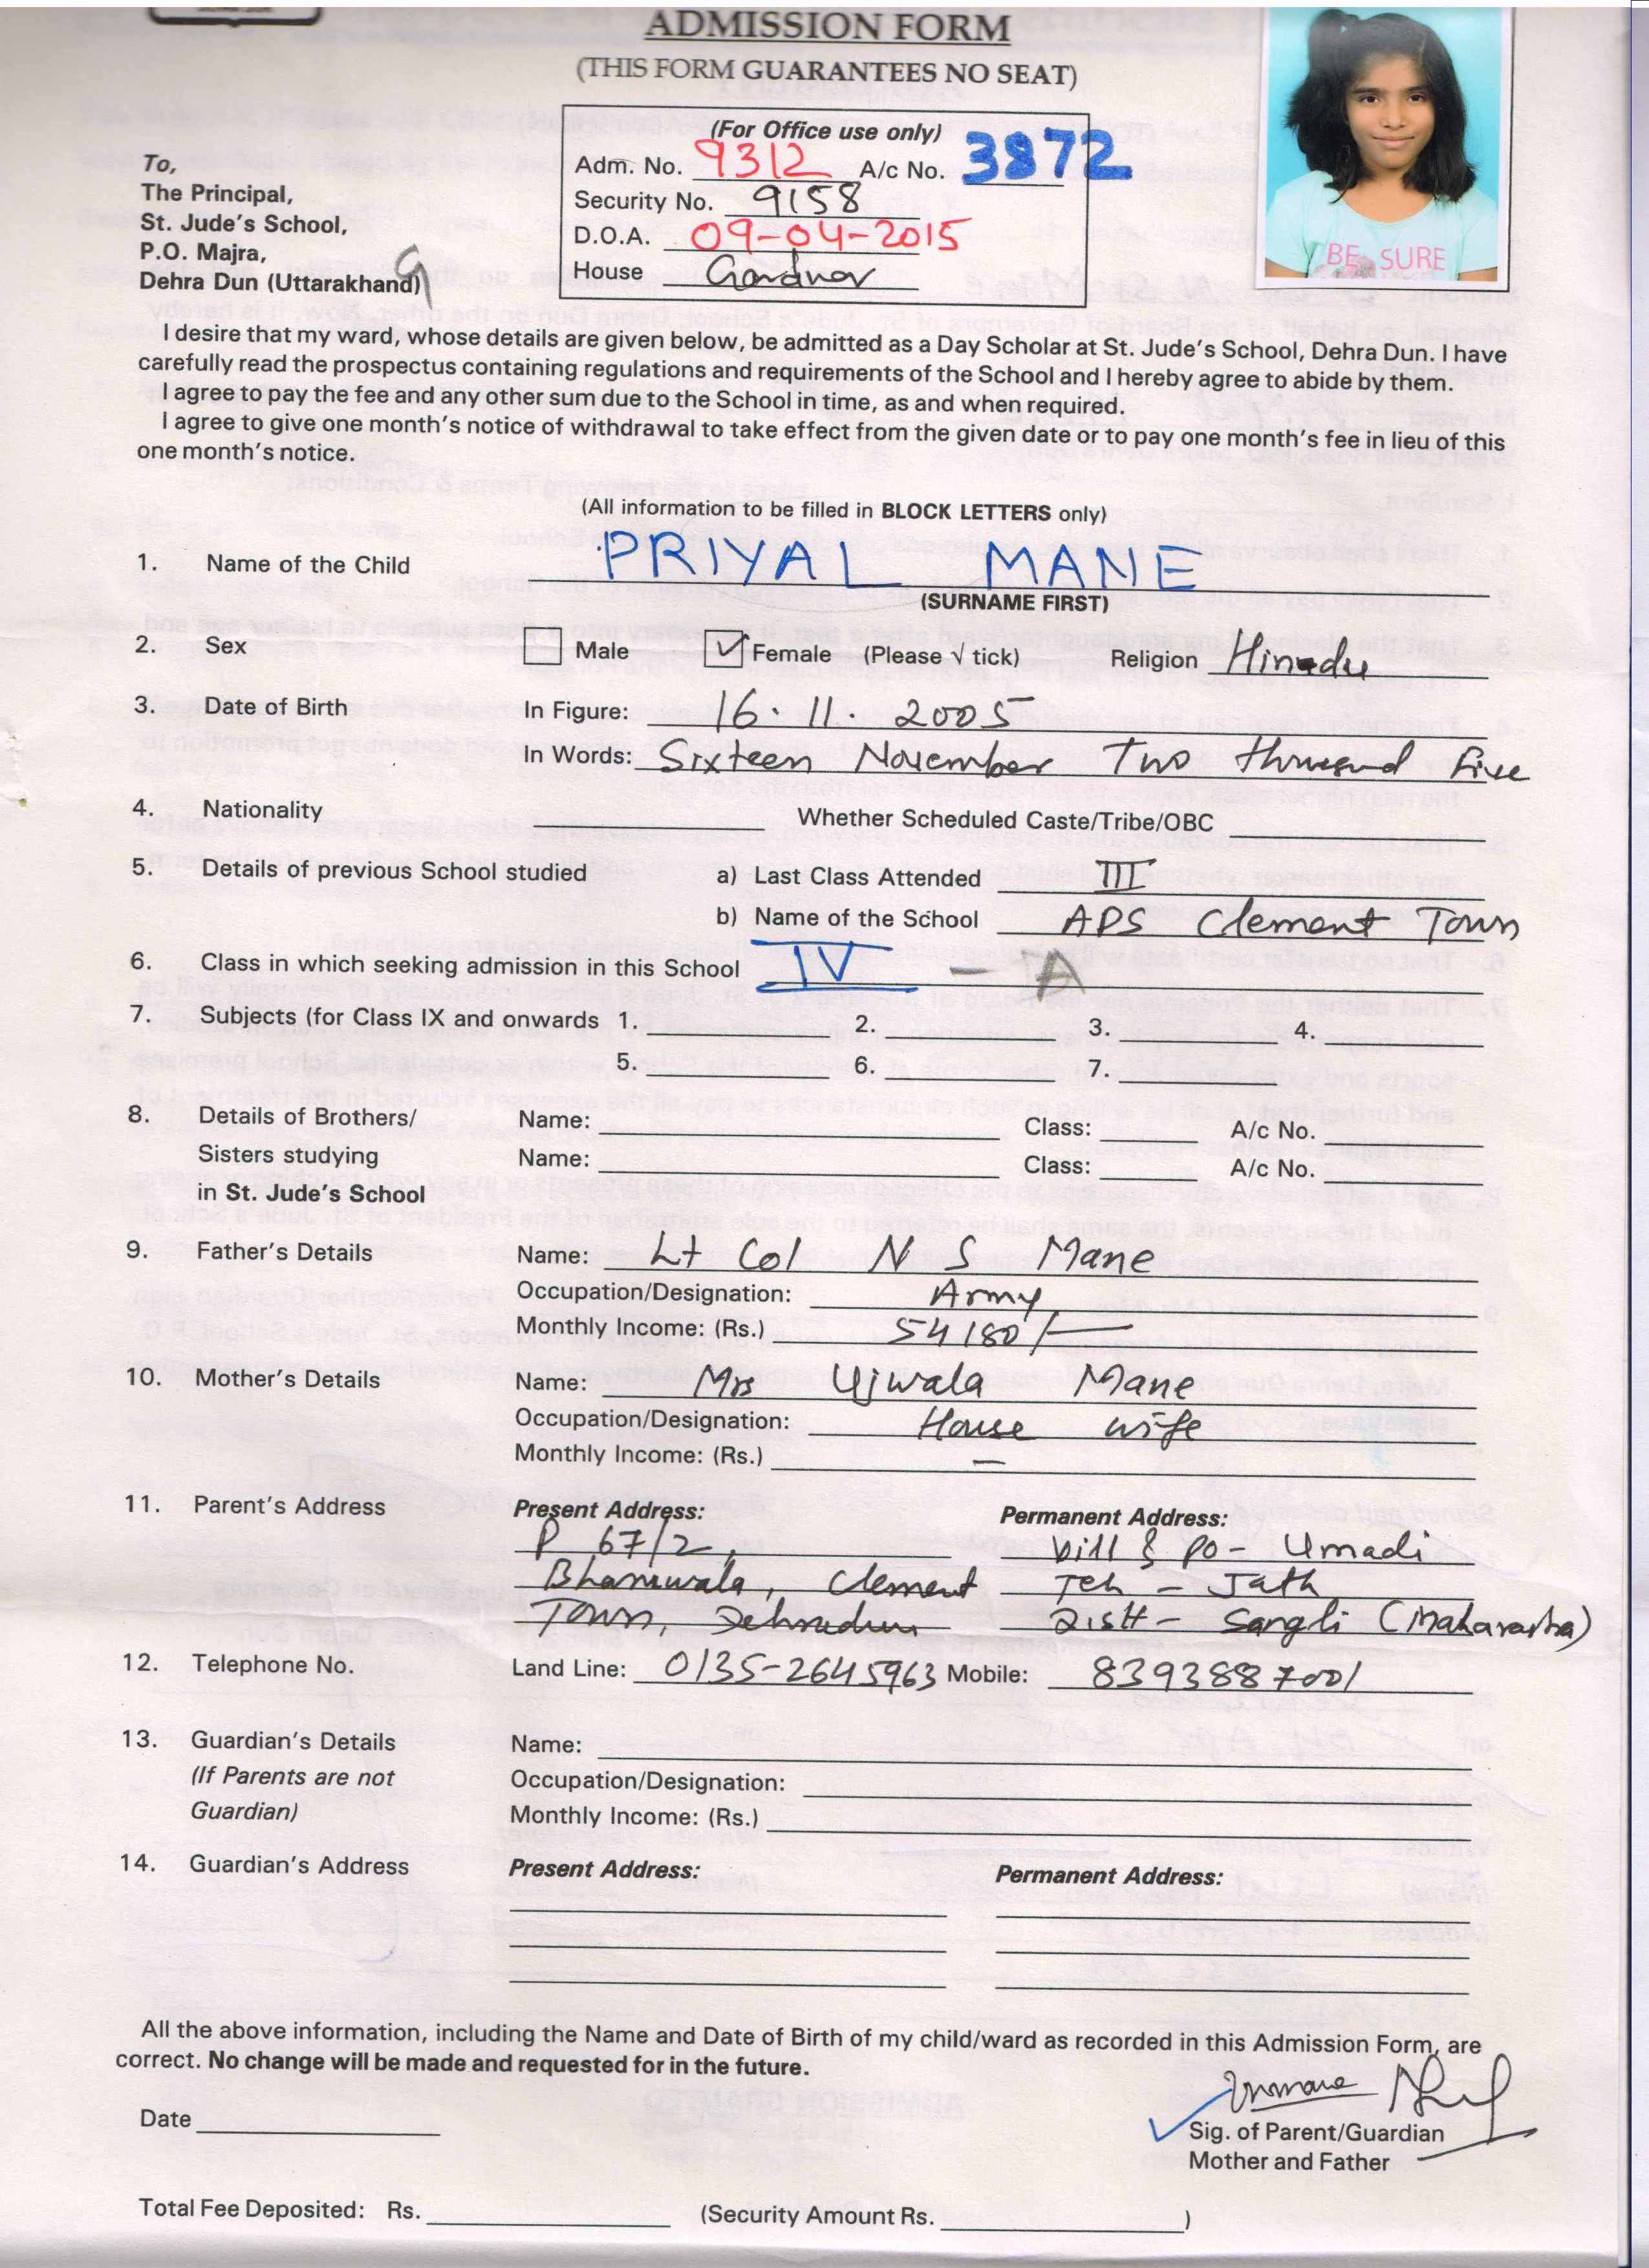 ADMISSION FORM
(THIS FORM GUARANTEES NO SEAT)
(For Office use only)
Adm. No. 9312 A/c No. 3872
Security No. 9158
D.O.A. 09-04-2015
House Gardner
To,
The Principal,
St. Jude's School,
P.O. Majra,
Dehra Dun (Uttarakhand)
BE SURE
I desire that my ward, whose details are given below, be admitted as a Day Scholar at St. Jude's School, Dehra Dun. I have
carefully read the prospectus containing regulations and requirements of the School and I hereby agree to abide by them.
I agree to pay the fee and any other sum due to the School in time, as and when required.
I agree to give one month's notice of withdrawal to take effect from the given date or to pay one month's fee in lieu of this
one month's notice.
(All information to be filled in BLOCK LETTERS only)
1. Name of the Child PRIYAL MANE
(SURNAME FIRST)
2. Sex Male Female (Please √ tick) Religion Hindu
3. Date of Birth In Figure: 16.11.2005
In Words: Sixteen November Two thousand five
4. Nationality Whether Scheduled Caste/Tribe/OBC
5. Details of previous School studied a) Last Class Attended III
b) Name of the School APS Clement Town
6. Class in which seeking admission in this School IV - A
7. Subjects (for Class IX and onwards 1. 2. 3. 4.
5. 6. 7.
8. Details of Brothers/ Name: Class: A/c No.
Sisters studying Name: Class: A/c No.
in St. Jude's School
9. Father's Details Name: Lt Col N S Mane
Occupation/Designation: Army
Monthly Income: (Rs.) 54180/-
10. Mother's Details Name: Mrs Ujwala Mane
Occupation/Designation: House wife
Monthly Income: (Rs.) -
11. Parent's Address Present Address: Permanent Address:
P 67/2, Vill & PO - Umadi
Bharuwala, Clement Teh - Jath
Town, Dehradun Distt - Sangli (Maharastra)
12. Telephone No. Land Line: 0135-2645963 Mobile: 8393887001
13. Guardian's Details Name:
(If Parents are not Occupation/Designation:
Guardian) Monthly Income: (Rs.)
14. Guardian's Address Present Address: Permanent Address:
All the above information, including the Name and Date of Birth of my child/ward as recorded in this Admission Form, are
correct. No change will be made and requested for in the future.
Date
Sig. of Parent/Guardian
Mother and Father
Total Fee Deposited: Rs. (Security Amount Rs. )